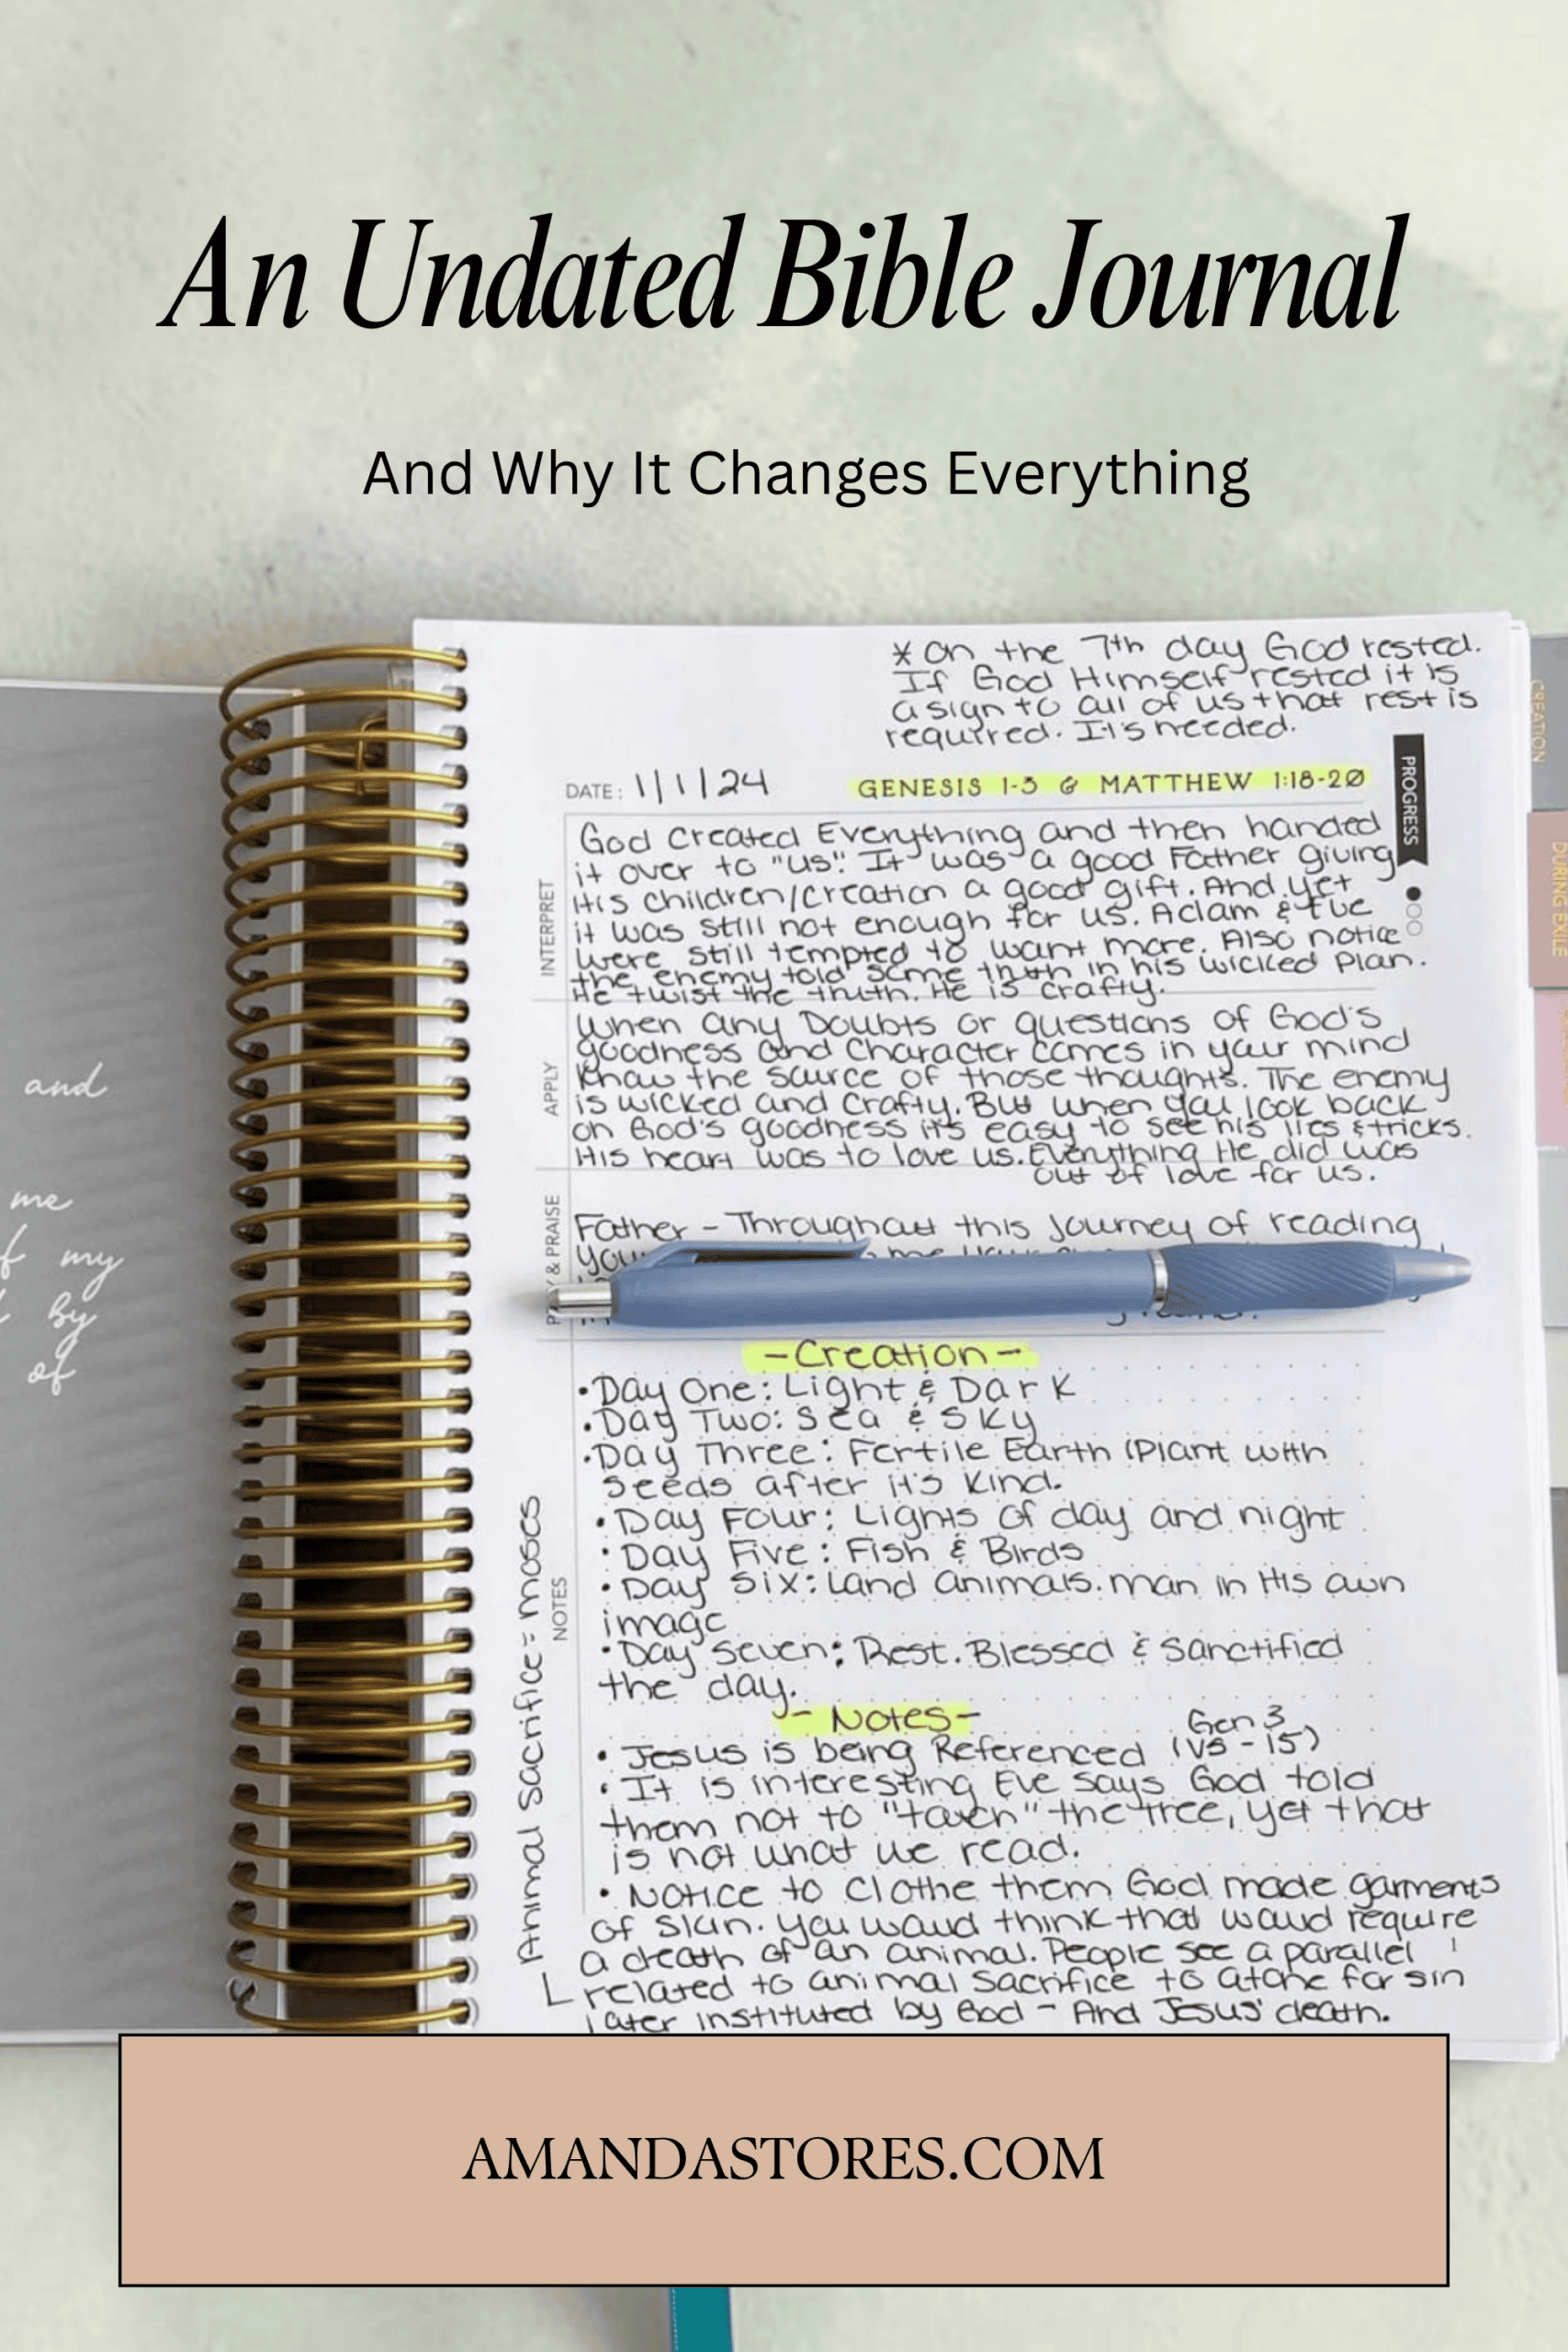 An Undated Bible Journal
And Why It Changes Everything
* On the 7th day God rested.
If God Himself rested it is
a sign to all of us that rest is
required. It's needed.
DATE: 1/1/24 GENESIS 1-3 & MATTHEW 1:18-20
PROGRESS
INTERPRET
God created Everything and then handed
it over to "us". It was a good Father giving
His children/creation a good gift. And yet
it was still not enough for us. Adam & Eve
were still tempted to want more. Also notice
the enemy told some truth in his wicked plan.
He twist the truth. He is crafty.
APPLY
When any Doubts or questions of God's
goodness and character comes in your mind
Know the source of those thoughts. The enemy
is wicked and crafty. But when you look back
on God's goodness it's easy to see his lies & tricks.
His heart was to love us. Everything He did was
out of love for us.
& PRAISE
Father - Throughout this journey of reading
-Creation-
• Day One: Light & Dark
• Day Two: Sea & Sky
• Day Three: Fertile Earth (Plant with
seeds after it's kind.
• Day Four: Lights of day and night
• Day Five: Fish & Birds
• Day Six: Land animals. man in His own
image
• Day Seven: Rest. Blessed & Sanctified
the day.
NOTES
- Notes-
• Jesus is being Referenced (Gen 3 vs - 15)
• It is interesting Eve says God told
them not to "touch" the tree, yet that
is not what we read.
• Notice to clothe them God made garments
of skin. You woud think that woud require
a death of an animal. People see a parallel
related to animal sacrifice to atone for sin
later instituted by God - And Jesus' death.
Animal Sacrifice = moses
and
me
my
by
of
CREATION
DURING EXILE
AMANDASTORES.COM